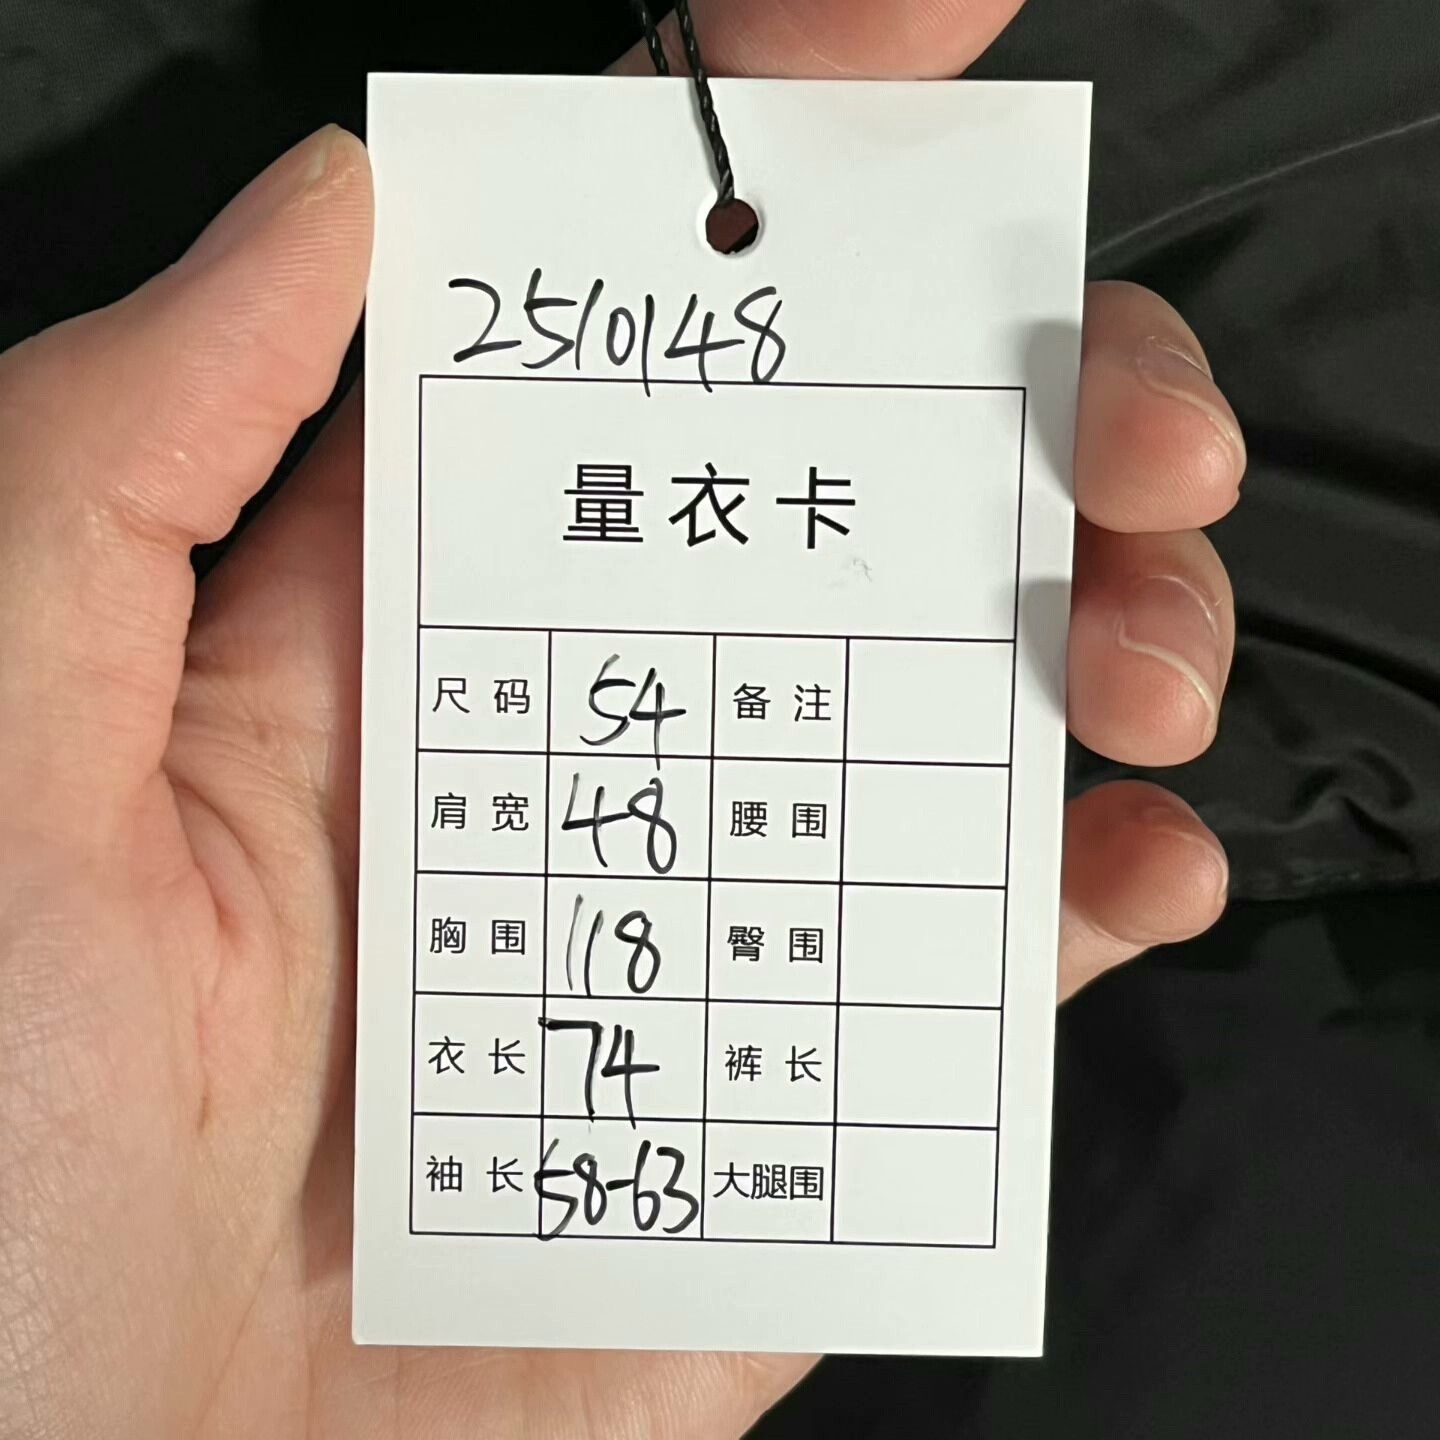 2510148
量衣卡
尺码 54 备注
肩宽 48 腰围
胸围 118 臀围
衣长 74 裤长
袖长 58-63 大腿围